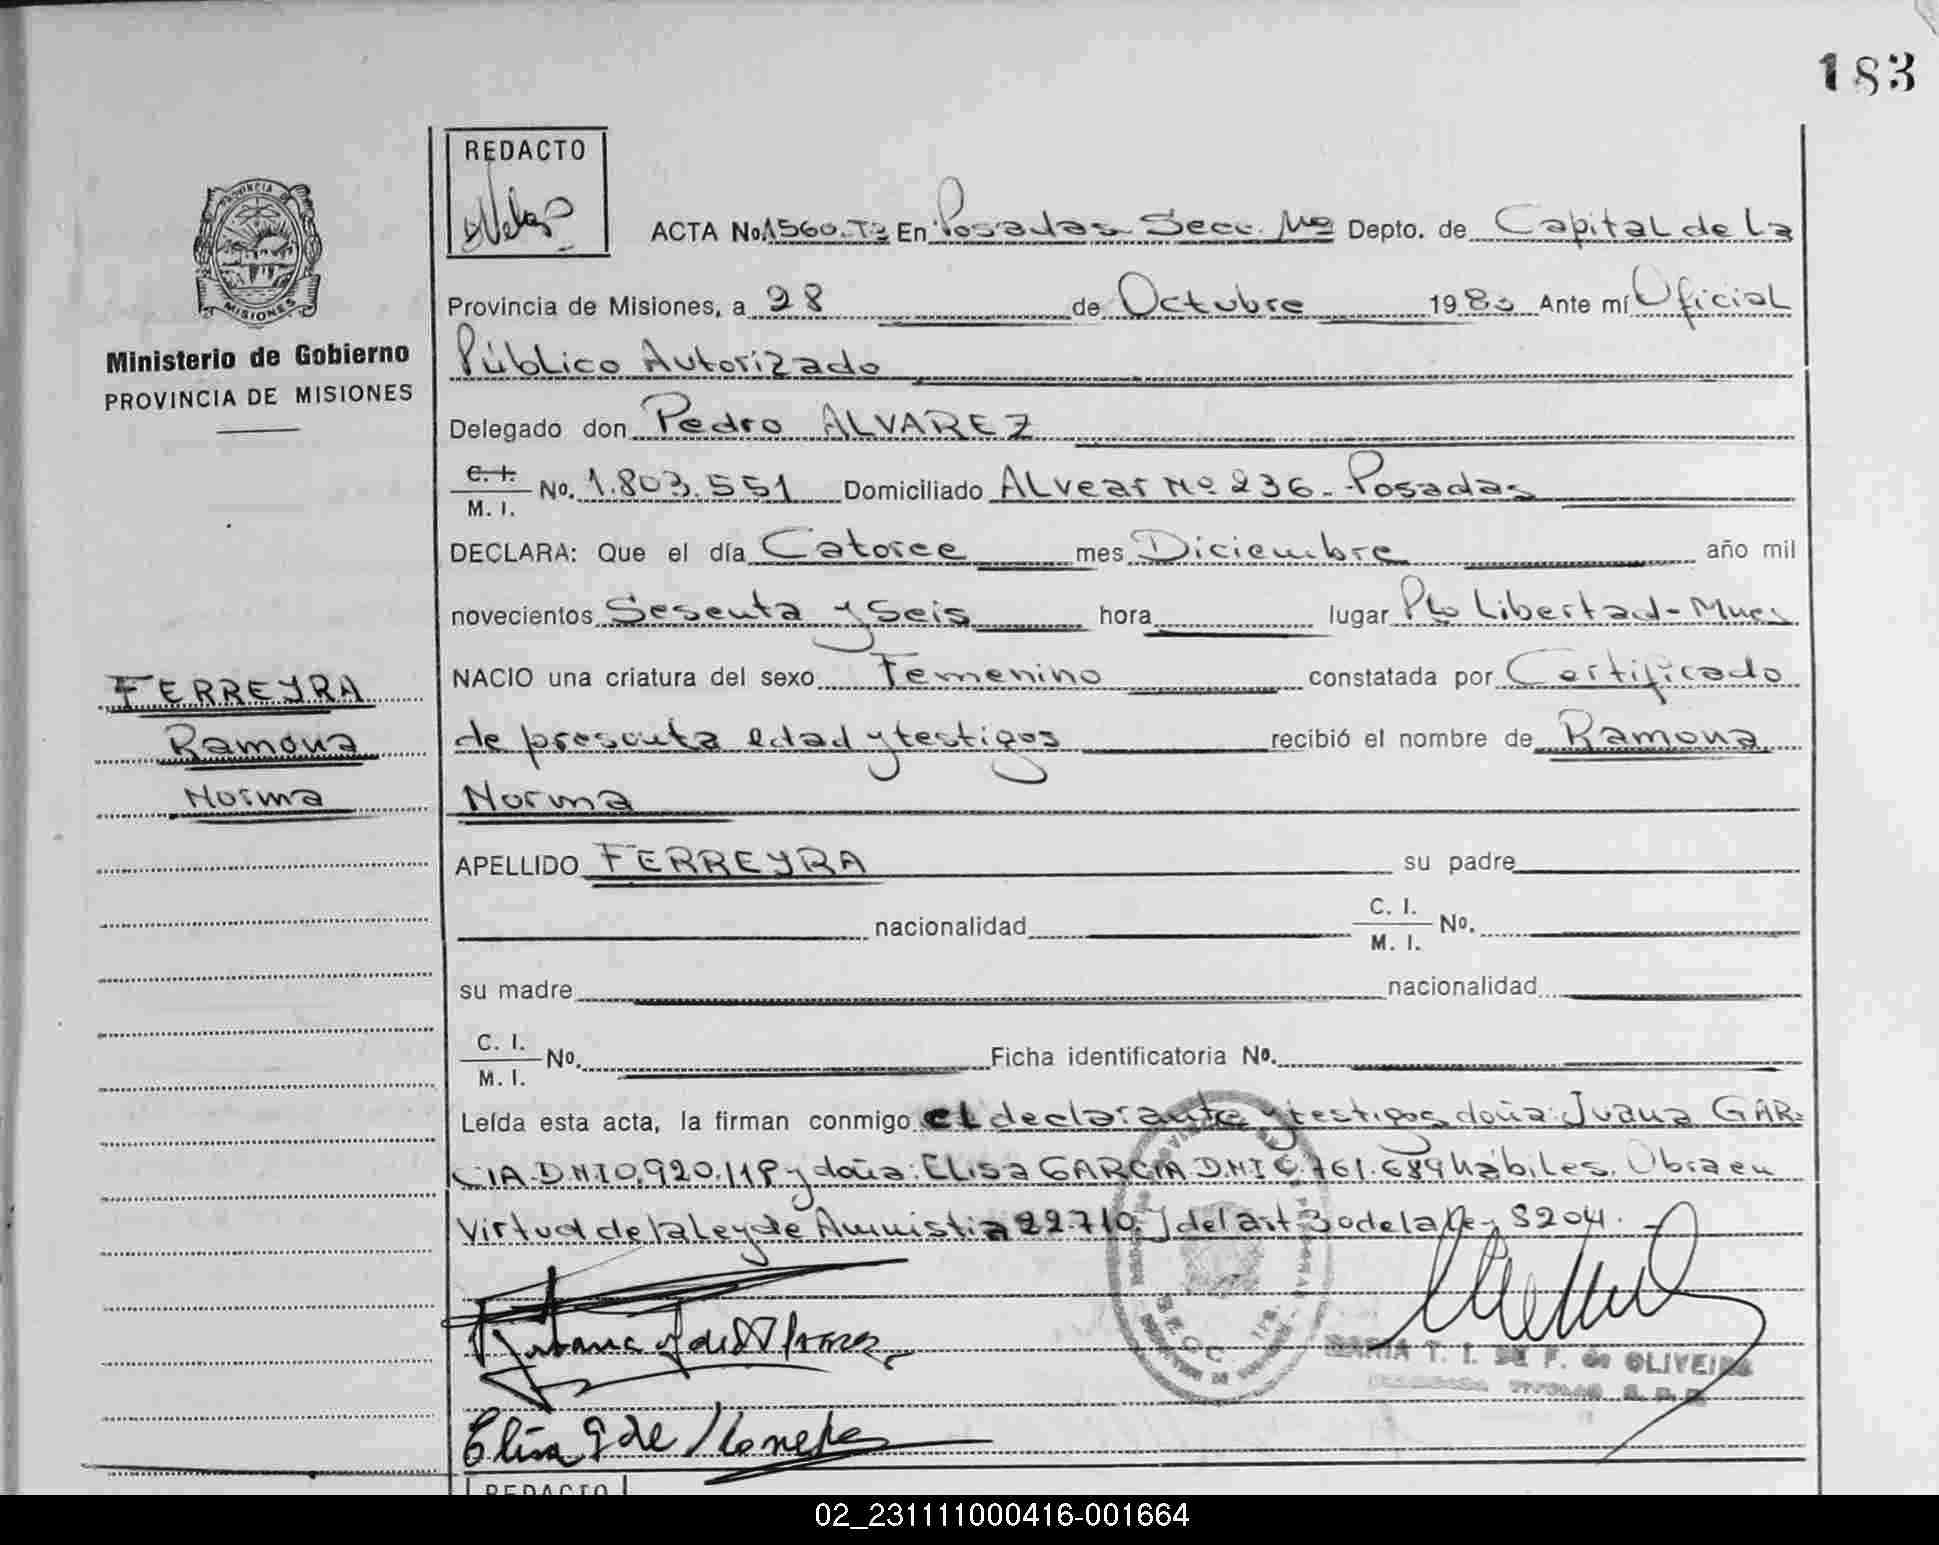 183
REDACTO
ACTA No. 1560. Tº En Posadas Secc. Depto. de Capital de la
Provincia de Misiones, a 28 de Octubre 1983 Ante mí Oficial
Público Autorizado
Delegado don Pedro ALVAREZ
C. I.
M. I. No. 1.803.551 Domiciliado ALvear Nº 236 - Posadas
DECLARA: Que el día Catorce mes Diciembre año mil
novecientos Sesenta y Seis hora lugar Pto Libertad - Mnes
NACIO una criatura del sexo Femenino constatada por Certificado
de presunta edad y testigos recibió el nombre de Ramona
Norma
APELLIDO FERREYRA su padre
nacionalidad C. I.
M. I. No.
su madre nacionalidad
C. I.
M. I. No. Ficha identificatoria No.
Leída esta acta, la firman conmigo el declarante y testigos doña: Juana GAR-
CIA. D.N.I 0.920.118 y doña: Elisa GARCIA D.N.I 6.761.689 hábiles. Obra en
Virtud de la Ley de Amnistia 22.710 y del art 30 de la Ley 8204.
SECC.
MARIA T. I. DE F. de OLIVEIRA
Elisa G de
REDACTO
PROVINCIA DE
MISIONES
Ministerio de Gobierno
PROVINCIA DE MISIONES
FERREYRA
Ramona
Norma
02_231111000416-001664